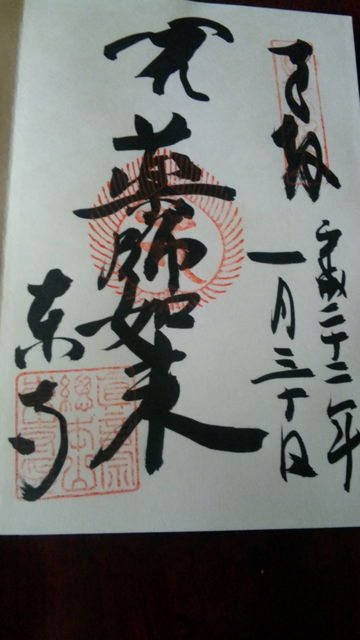 奉拝
平成二十二年
一月三十日
薬師如来
東寺